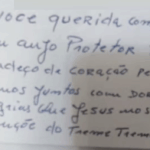 voce querida com
u anjo Protetor
adeço de coração pe
mos juntos com Do
rias que Jesus nos
nção do Treme Trem